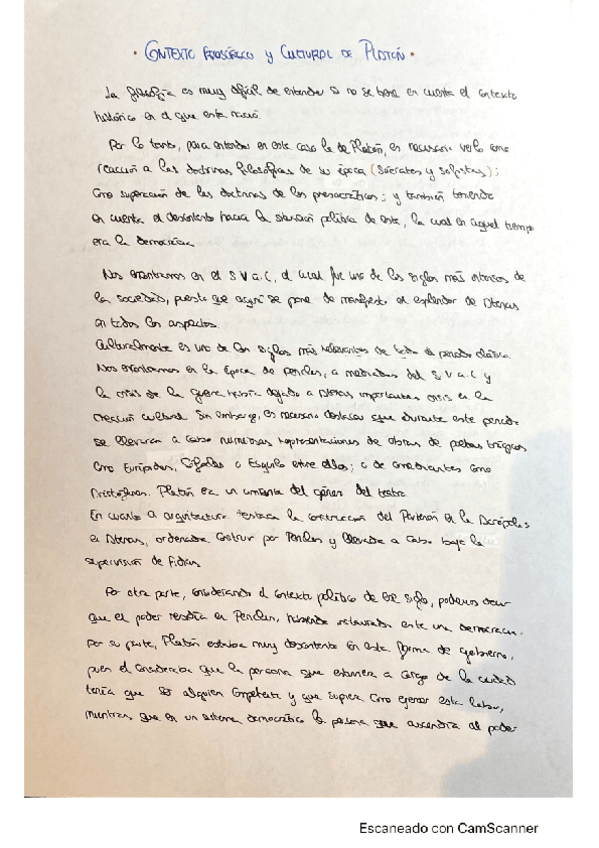 · CONTEXTO FILOSÓFICO Y CULTURAL DE PLATÓN ·
La filosofía es muy difícil de entender si no se tiene en cuenta el contexto
histórico en el que esta nació.
Por lo tanto, para entender en este caso la de Platón, es necesario verlo como
reacción a las doctrinas filosóficas de su época (Sócrates y sofistas);
como superación de las doctrinas de los presocráticos; y también teniendo
en cuenta el descontento hacia la situación política de este, la cual en aquel tiempo
era la democracia.
Nos encontramos en el S V a.C, el cual fue uno de los siglos más intensos de
la sociedad, puesto que aquí se pone de manifiesto el esplendor de Atenas
en todos los aspectos.
Culturalmente es uno de los siglos más relevantes de todo el periodo clásico.
Nos encontramos en la época de Pericles, a mediados del S V a.C y
la crisis de la guerra había dejado a Atenas importantes crisis en la
creación cultural. Sin embargo, es necesario destacar que durante este periodo
se llevaron a cabo numerosas representaciones de obras de poetas trágicos
como Eurípides, Sófocles o Esquilo entre ellos; o de comediantes como
Aristófanes. Platón era un amante del género del teatro.
En cuanto a arquitectura destaca la construcción del Partenón en la Acrópolis
en Atenas, ordenada construir por Pericles y llevada a cabo bajo la
supervisión de Fidias.
Por otra parte, considerando el contexto político de ese siglo, podemos decir
que el poder residía en Pericles, habiendo instaurado este una democracia.
Por su parte, Platón estaba muy descontento con esta forma de gobierno,
pues el consideraba que la persona que estuviera a cargo de la ciudad
tenía que ser alguien competente y que supiera como ejercer esta labor,
mientras que en un sistema democrático la persona que ascendía al poder
Escaneado con CamScanner